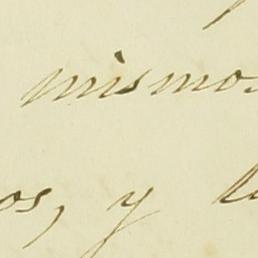 mismo
os, y